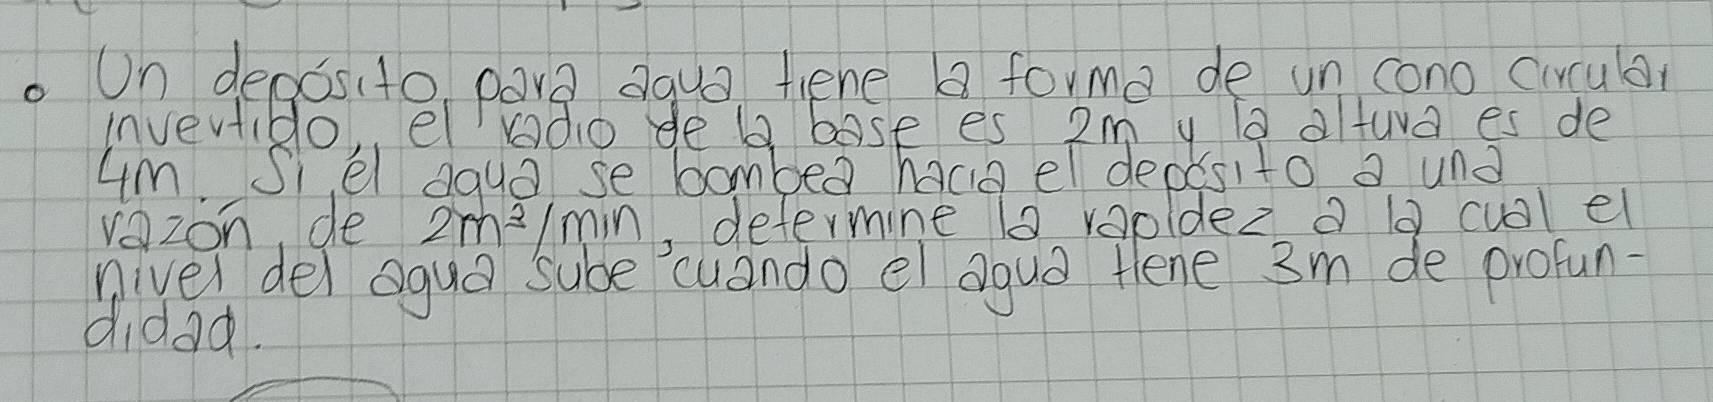 • Un depósito, para agua, tiene la forma de un cono circular
invertido, el radio de la base es 2m y la altura es de
4m. Si el agua se bombea hacia el depósito a una
razón, de 2m³/min, determine la rapidez a la cual el
nivel del agua sube cuando el agua tiene 3m de profun-
didad.